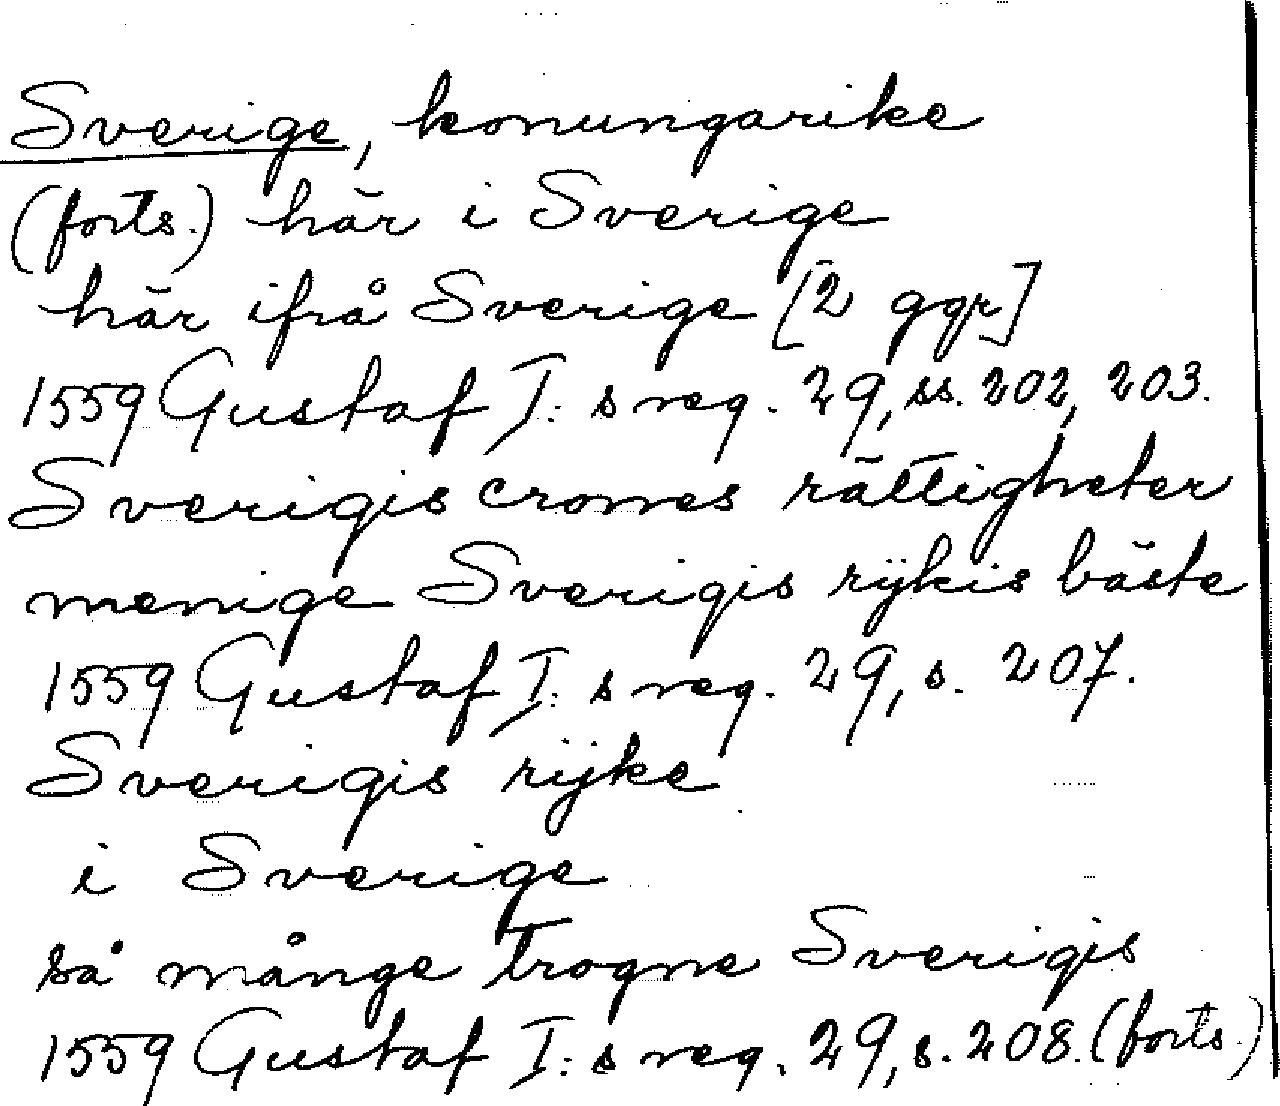 Sverige, konungarike
(forts.) här i Sverige
här ifrå Sverige [2 ggr]
1559 Gustaf I:s reg. 29, ss. 202, 203.
Sverigis crones rättigheter
menige Sverigis rijkis bäste
1559 Gustaf I:s reg. 29, s. 207.
Sverigis rijke
i Sverige
så månge trogne Sverigis
1559 Gustaf I:s reg. 29, s. 208. (forts.)